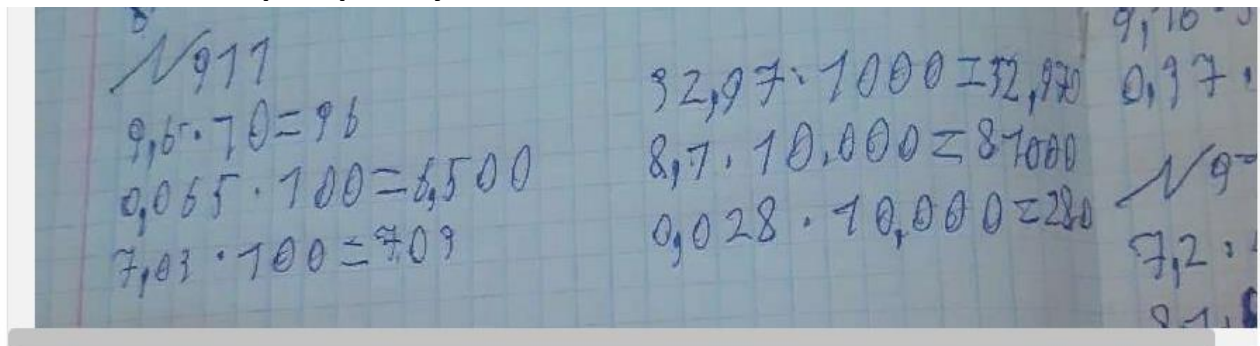 N911
9,6·10=96
0,065·100=6,500
7,03·100=703
32,97·1000=32,970
8,1·10.000=81000
0,028·10,000=280
9,16
0,37·
N9
7,2: